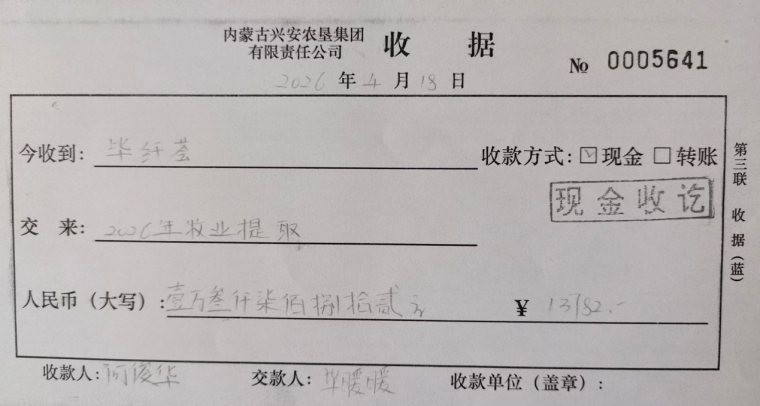 内蒙古兴安农垦集团
有限责任公司
收 据
№ 0005641
2026 年 4 月 18 日
今收到: 毕纤荟
收款方式: ☑现金 □转账
现金收讫
交 来: 2026年牧业提取
人民币（大写）: 壹万叁仟柒佰捌拾贰元 ¥ 13782.-
收款人: 阿俊华 交款人: 毕暖暖 收款单位（盖章）:
第三联 收据（蓝）